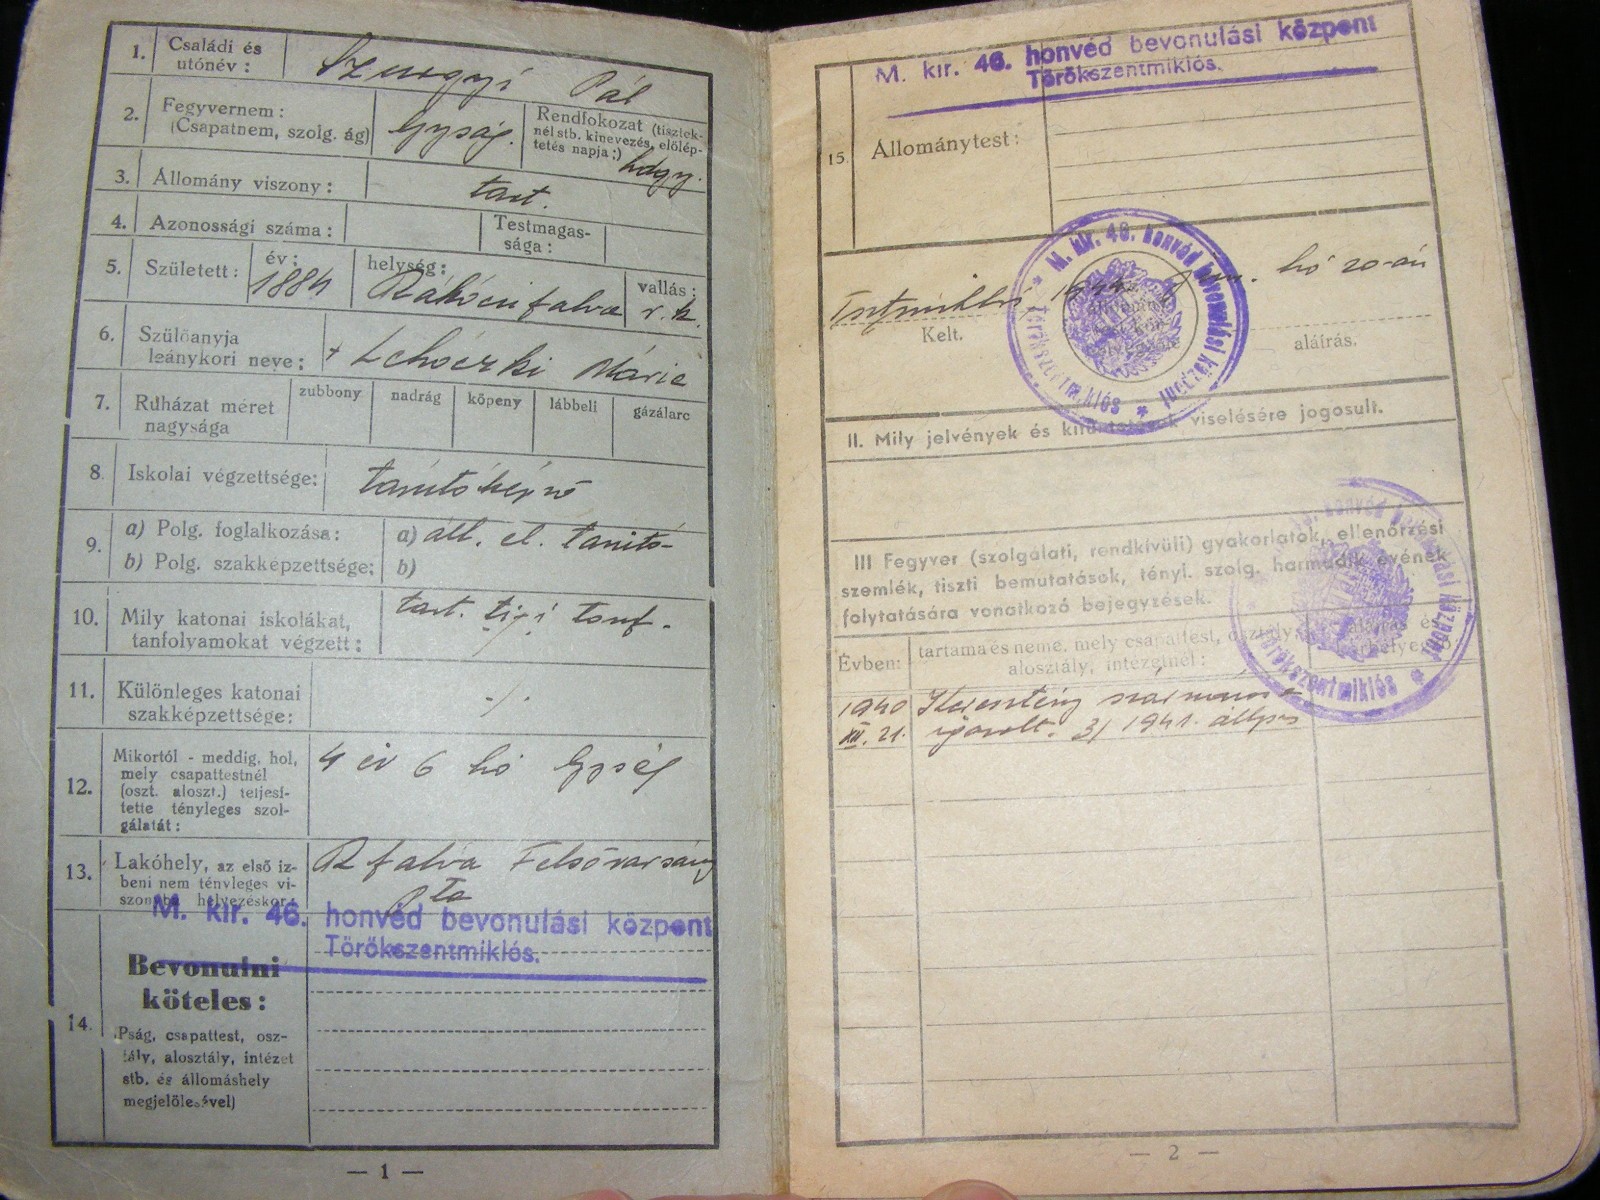 1. Családi és
utónév:
Pál
2. Fegyvernem:
(Csapatnem, szolg. ág)
Gyság.
Rendfokozat (tisztek-
nél stb. kinevezés, előlép-
tetés napja:)
hdgy.
3. Állomány viszony:
tart.
4. Azonossági száma:
Testmagas-
sága:
5. Született:
év:
1884
helység:
Rákócifalva
vallás:
r. k.
6. Szülőanyja
leánykori neve:
+ Lehoczki Mária
7. Ruházat méret
nagysága
zubbony nadrág köpeny lábbeli gázálarc
8. Iskolai végzettsége:
tanítóképző
9. a) Polg. foglalkozása:
a) áll. el. tanító
b) Polg. szakképzettsége:
b)
10. Mily katonai iskolákat,
tanfolyamokat végzett:
tart. tiszti tanf.
11. Különleges katonai
szakképzettsége:
-/.
12. Mikortól - meddig, hol,
mely csapattestnél
(oszt. aloszt.) teljesí-
tette tényleges szol-
gálatát:
4 év 6 hó Gyság
13. Lakóhely, az első íz-
beni nem tényleges vi-
szonyba helyezéskor:
R falva Felsővarsány
pta
M. kir. 46. honvéd bevonulási központ
Törökszentmiklós.
14. Bevonulni
köteles:
(Pság, csapattest, osz-
tály, alosztály, intézet
stb. és állomáshely
megjelölésével)
— 1 —
M. kir. 46. honvéd bevonulási központ
Törökszentmiklós.
15. Állománytest:
M. kir. 46. honvéd bevonulási központ
* Törökszentmiklós *
hó 20-án
Kelt.
aláírás.
II. Mily jelvények és kitüntetések viselésére jogosult.
III Fegyver (szolgálati, rendkívüli) gyakorlatok, ellenőrzési
szemlék, tiszti bemutatások, tényl. szolg. harmadik évének
folytatására vonatkozó bejegyzések.
Évben:
tartama és neme, mely csapattest, osztály,
alosztály, intézetnél:
aláírás és
honvéd bevonulási központ
Törökszentmiklós *
1940 Keresztény származása
XII. 21. igazolt. 3/ 1941.
— 2 —